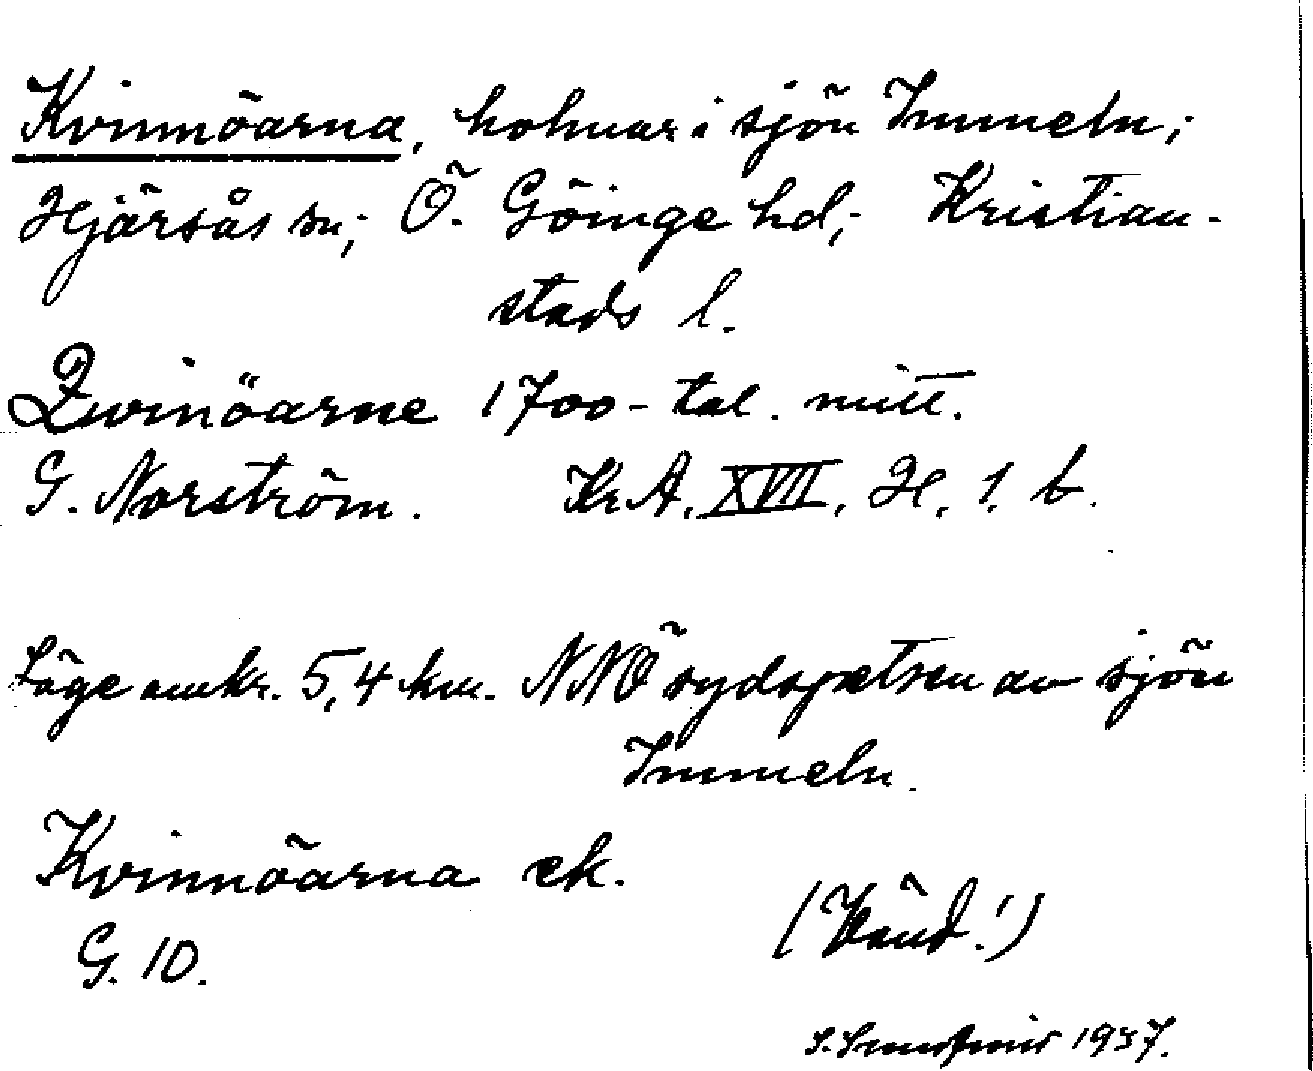 Kvinnöarna, holmar i sjön Immeln;
Hjärsås sn; Ö. Göinge hd; Kristian-
stads l.
Qwinöarne 1700-tal. mitt.
G. Norström. Kr A. XVII. H. 1. b.
Läge omkr. 5,4 km. NNÖ sydspetsen av sjön
Immeln.
Kvinnöarna ek.
G. 10.
(Vänd!)
S. 1937.